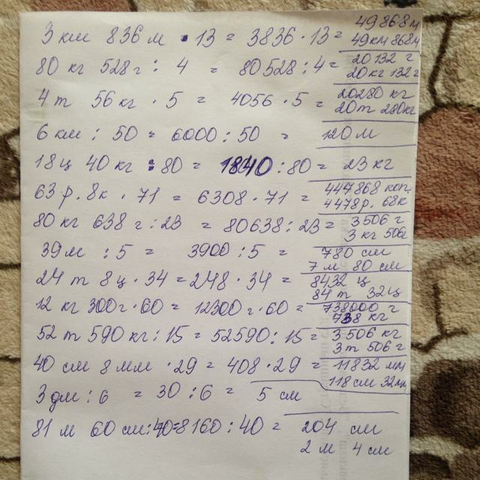 3 км 836 м · 13 = 3836 · 13 = 49868 м
49 км 868 м
80 кг 528 г : 4 = 80528 : 4 = 20132 г
20 кг 132 г
4 т 56 кг · 5 = 4056 · 5 = 20280 кг
20 т 280 кг
6 км : 50 = 6000 : 50 = 120 м
18 ц 40 кг : 80 = 1840 : 80 = 23 кг
63 р. 8 к · 71 = 6308 · 71 = 447868 коп.
4478 р. 68 к
80 кг 638 г : 23 = 80638 : 23 = 3506 г
3 кг 506 г
39 м : 5 = 3900 : 5 = 780 см
7 м 80 см
24 т 8 ц · 34 = 248 · 34 = 8432 ц
84 т 32 ц
12 кг 300 г · 60 = 12300 г · 60 = 738000 г
738 кг
52 т 590 кг : 15 = 52590 : 15 = 3506 кг
3 т 506 г
40 см 8 мм · 29 = 408 · 29 = 11832 мм
118 см 32 мм
3 дм : 6 = 30 : 6 = 5 см
81 м 60 см : 40 = 8160 : 40 = 204 см
2 м 4 см